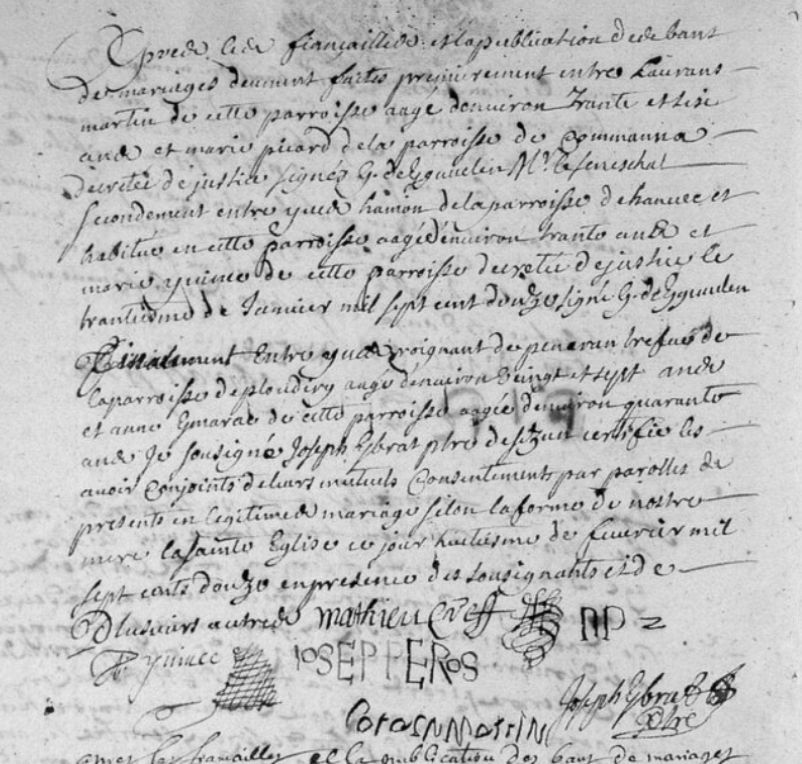 Apres les fiançailles et la publication de de bant
de mariages deument faites premierement entre Laurans
martin de cette parroisse aagé denviron Trante et sis
ans et marie picard de la parroisse de Commanna
decretée de justice signéz G. de Le seneschal
secondement entre yues hamon de la parroisse de hanuec et
habitué en cette parroisse aagé denviron trante ans et
marie quinec de cette parroisse decretée de justice le
trantiesme de Januier mil sept cent douze signé G. de
Finalement Entre yues proignant de penauan trefue de
la parroisse de ploudiry aagé denviron Veingt et sept ans
et anne de cette parroisse aagée denviron quarante
ans Je sousigné Joseph ptre certifie les
auoir Conjoints de leurs mutuels Consentements par parolles de
presents en legitimes mariage selon la forme de nostre
mere la sainte Eglise ce jour huitiesme de feurier mil
sept cents douze en presence des sousignants et de
Plusieurs autres mathieu Creff np
quinec
IOSEPPEROS
Joseph
ptre
Martin
apres les fiançailles et la publication des bant de mariages